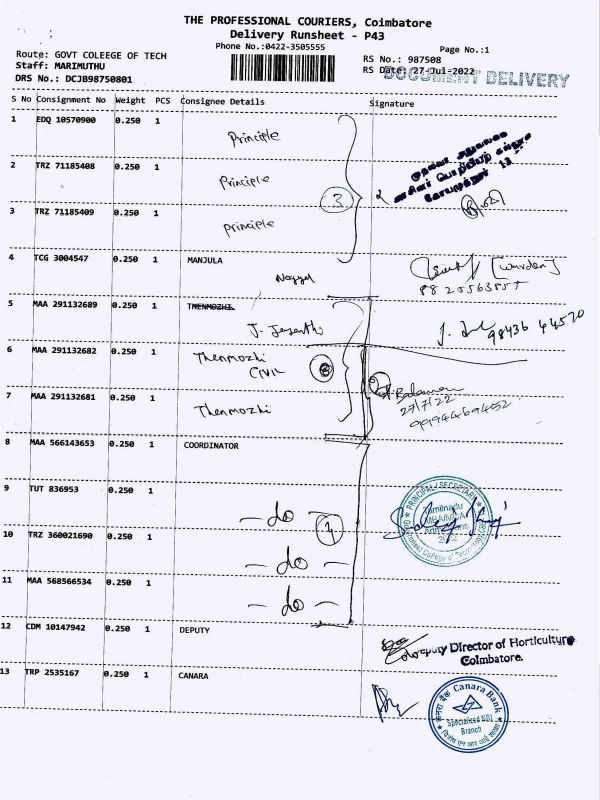 THE PROFESSIONAL COURIERS, Coimbatore
Delivery Runsheet - P43
Phone No.:0422-3505555
Page No.:1
Route: GOVT COLEEGE OF TECH
Staff: MARIMUTHU
DRS No.: DCJB98750801
RS No.: 987508
RS Date: 27-Jul-2022
DOCUMENT DELIVERY
S No Consignment No Weight PCS Consignee Details Signature
1 EDQ 10570900 0.250 1 Principle
2 TRZ 71185408 0.250 1 Principle
3 TRZ 71185409 0.250 1 Principle
3
4 TCG 3004547 0.250 1 MANJULA
[Warden]
5 MAA 291132689 0.250 1 THENMOZHI
J. Jayanthi
98436 44520
6 MAA 291132682 0.250 1 Thenmozhi
CIVIL
7 MAA 291132681 0.250 1 Thenmozhi
27/7/22
9994469452
8 MAA 566143653 0.250 1 COORDINATOR
9 TUT 836953 0.250 1 - do -
4
10 TRZ 360021690 0.250 1 - do -
11 MAA 568566534 0.250 1 - do -
PRINCIPAL / SECRETARY
Tamilnadu
12 CDM 10147942 0.250 1 DEPUTY
Deputy Director of Horticulture
Coimbatore.
13 TRP 2535167 0.250 1 CANARA
Canara Bank
Specialised NRI
Branch